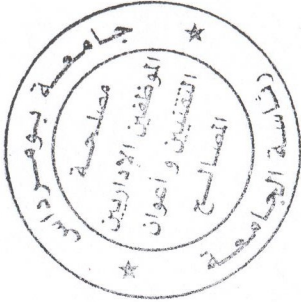 جامعة بومرداس
رئاسة الجامعة
مصلحة
الموظفين الإداريين
التقنيين و أعوان
المصالح